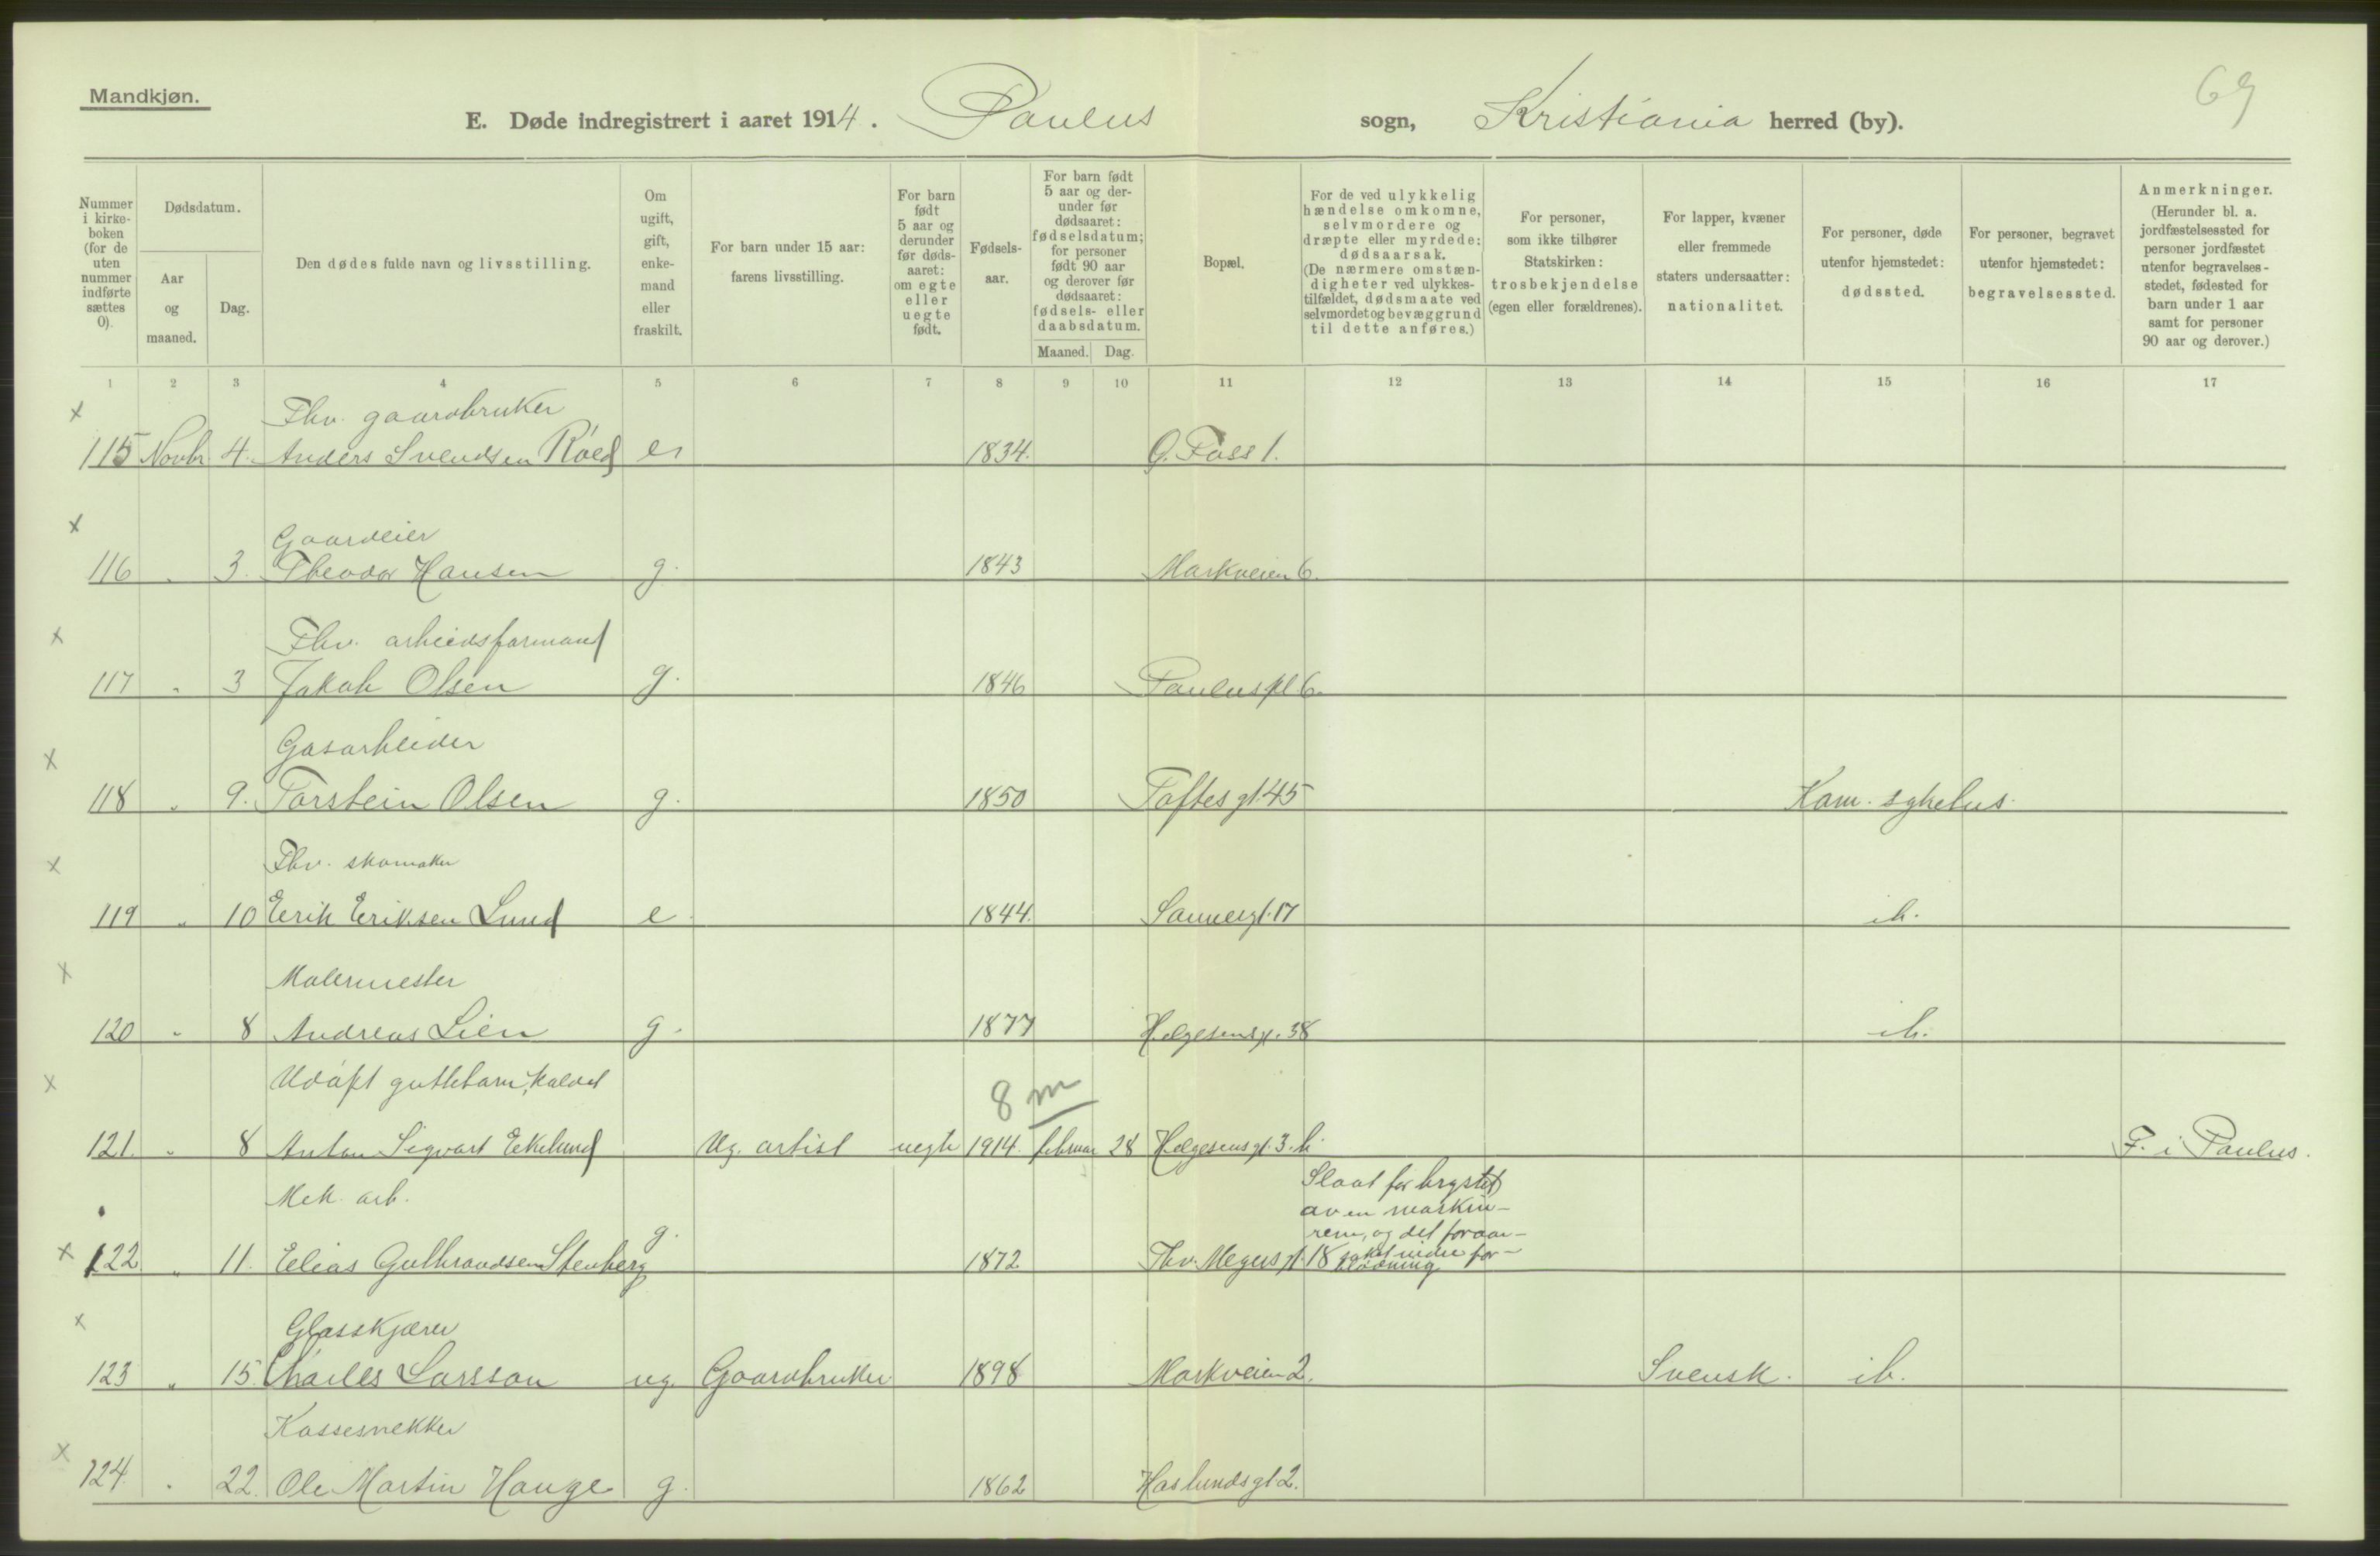 Mandkjøn.
69
E. Døde indregistrert i aaret 1914. Paulus sogn, Kristiania herred (by).
Nummer i kirke- boken (for de uten nummer indførte sættes 0).
Dødsdatum.
Aar og maaned.
Dag.
Den dødes fulde navn og livsstilling.
Om ugift, gift, enke- mand eller fraskilt.
For barn under 15 aar: farens livsstilling.
For barn født 5 aar og derunder før døds- aaret: om egte eller uegte født.
Fødsels- aar.
For barn født 5 aar og der- under før dødsaaret: fødselsdatum; for personer født 90 aar og derover før dødsaaret: fødsels- eller daabsdatum.
Maaned. Dag.
Bopæl.
For de ved ulykkelig hændelse omkomne, selvmordere og dræpte eller myrdede: dødsaarsak. (De nærmere omstæn- digheter ved ulykkes- tilfældet, dødsmaate ved selvmordet og bevæggrund til dette anføres.)
For personer, som ikke tilhører Statskirken: trosbekjendelse (egen eller forældrenes).
For lapper, kvæner eller fremmede staters undersaatter: nationalitet.
For personer, døde utenfor hjemstedet: dødssted.
For personer, begravet utenfor hjemstedet: begravelsessted.
Anmerkninger. (Herunder bl. a. jordfæstelsessted for personer jordfæstet utenfor begravelses- stedet, fødested for barn under 1 aar samt for personer 90 aar og derover.)
1 2 3 4 5 6 7 8 9 10 11 12 13 14 15 16 17
x Fhv. gaardbruker
115 Novbr 4. Anders Svendsen Røed e 1834. Ø. Foss 1.
x Gaardeier
116 " 3. Theodor Hansen g. 1843 Markveien 6.
x Fhv. arbeidsformand
117 " 3 Jakob Olsen g. 1846 Paulus pl. 6.
x Gasarbeider
118 " 9. Torstein Olsen g. 1850 Toftes gt. 45 Kom. sykehus.
x Fhv. skomaker
119 " 10 Eerik Eriksen Lund e 1844. Sannergt. 17 ib.
x Malermester
120 " 8 Andreas Lien g. 1877 Helgesensgt. 38 ib.
x Udøpt guttebarn, kaldet
8 m
121. " 8 Anton Sigvart Eckelund Ug. artist uegte 1914. februar 28 Helgesens gt. 3. b. F. i Paulus.
Mek. arb.
Slaat for brystet
av en maskin-
rem, og det foraar-
saket indre for-
blødning
x 122 " 11. Elias Gulbrandsen Stenberg g. 1872 Thv. Meyers gt. 18
x Glasskjærer
123 " 15. Charles Larsson ug. Gaardbruker 1898 Markveien 2. Svensk. ib.
Kassesnekker
x 124. " 22. Ole Martin Hauge g. 1862 Haslunds gt. 2.